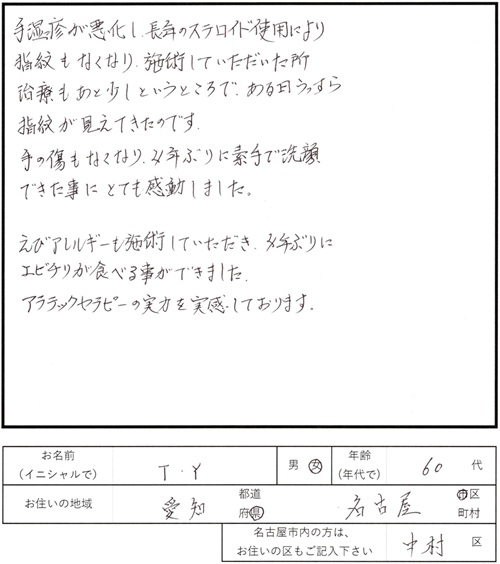 手湿疹が悪化し、長年のステロイド使用により
指紋もなくなり、施術していただいた所
治療もあと少しというところで、ある日うっすら
指紋が見えてきたのです。
手の傷もなくなり、年ぶりに素手で洗顔
できた事にとても感動しました。
えびアレルギーも施術していただき、年ぶりに
エビチリが食べる事ができました。
アラセラピーの実力を実感しております。
お名前
(イニシャルで)
T・Y
男 女
年齢
(年代で)
60 代
お住いの地域
愛知
都道
府県
名古屋
市区
町村
名古屋市内の方は、
お住いの区もご記入下さい
中村 区